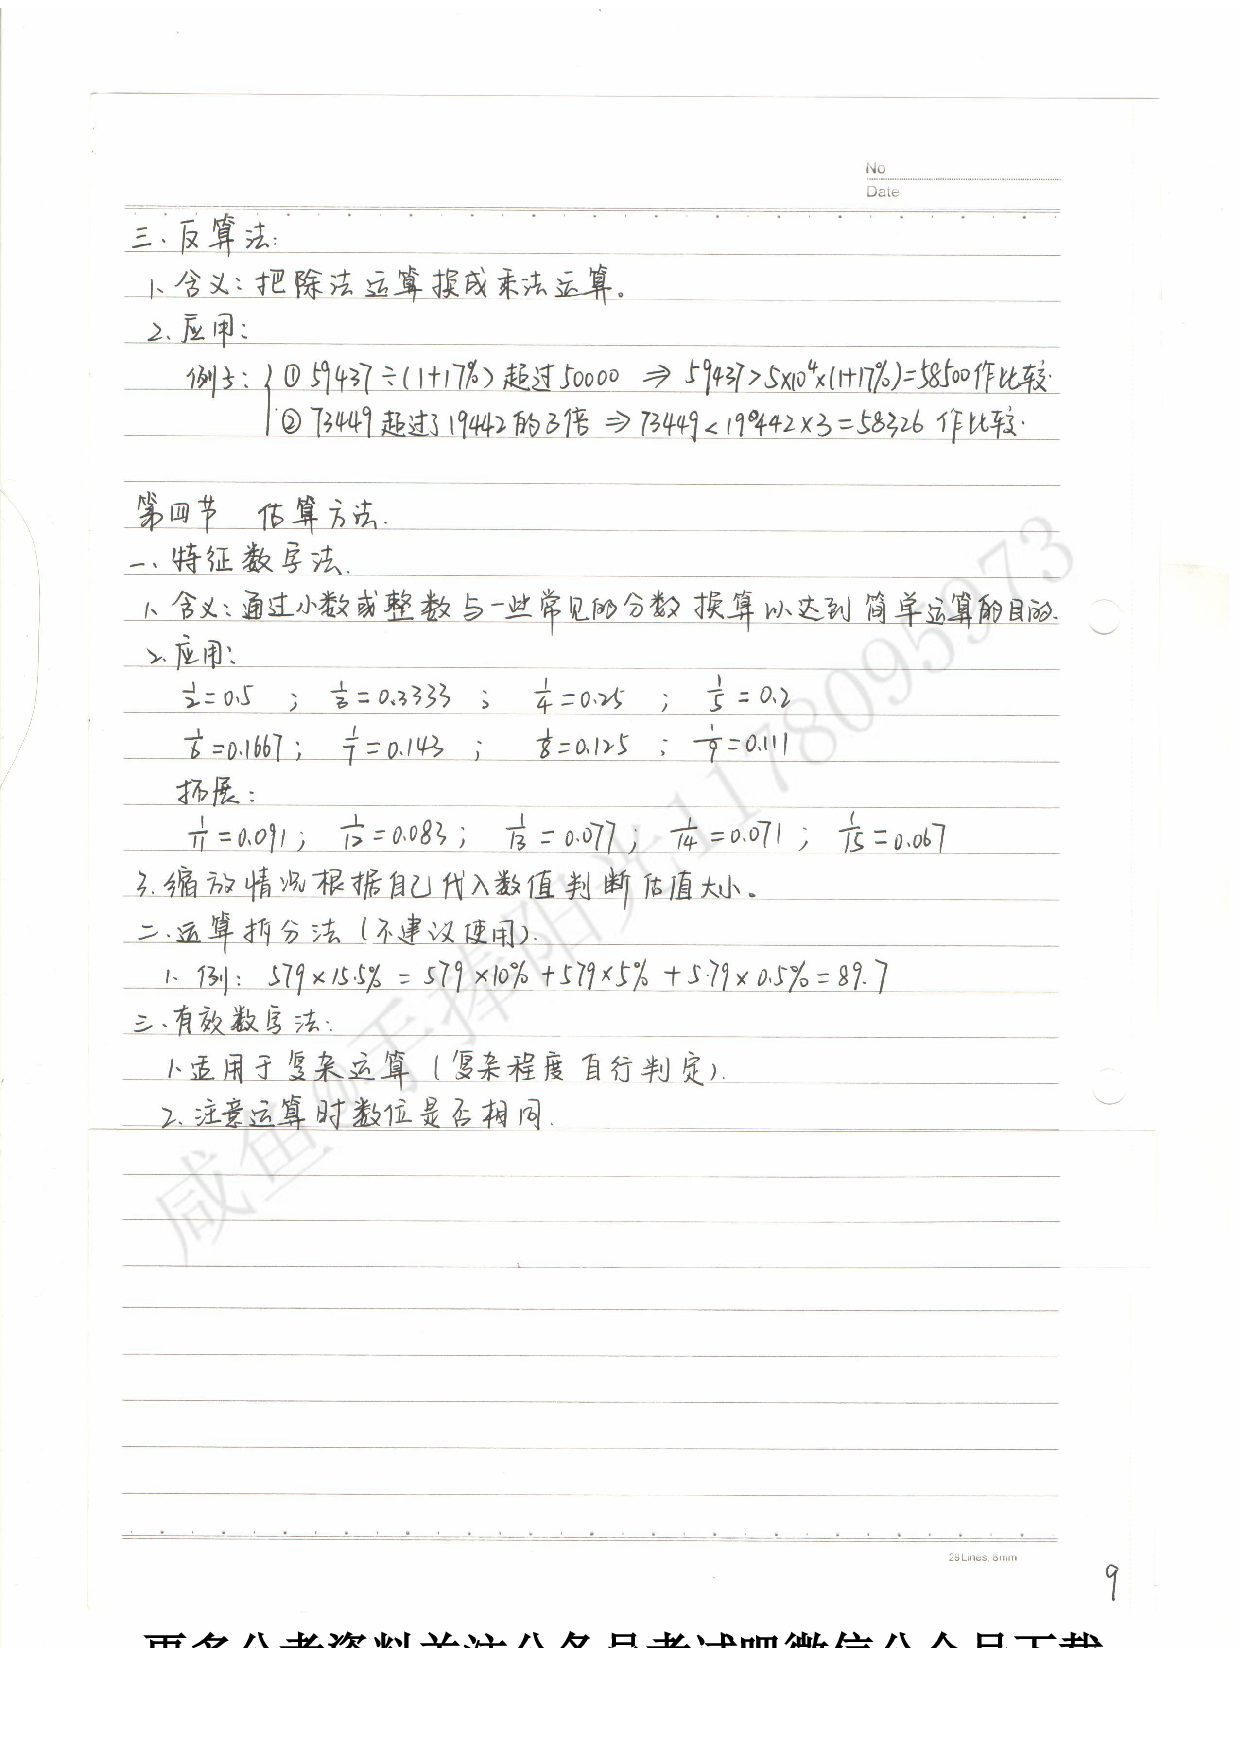 No
Date
三、反算法：
1、含义：把除法运算换成乘法运算。
2、应用：
例子：① 59437÷(1+17%) 超过50000 ⇒ 59437>5×10⁴×(1+17%)=58500作比较.
② 73449超过了19442的3倍 ⇒ 73449<19442×3=58326 作比较.
第四节 估算方法.
一、特征数字法.
1、含义：通过小数或整数与一些常见的分数换算以达到简单运算的目的.
2、应用：
1/2=0.5 ； 1/3=0.3333 ； 1/4=0.25 ； 1/5=0.2
1/6=0.1667； 1/7=0.143 ； 1/8=0.125 ； 1/9=0.111
拓展：
1/11=0.091； 1/12=0.083； 1/13=0.077； 1/14=0.071； 1/15=0.067
3.缩放情况根据自己代入数值判断估值大小。
二、运算拆分法（不建议使用）.
1、例：579×15.5%=579×10%+579×5%+579×0.5%=89.7
三、有效数字法：
1、适用于复杂运算（复杂程度自行判定）.
2、注意运算时数位是否相同.
咸鱼@手捧阳光1178095973
29Lines, 8mm
9
更多公考资料关注公务员考试吧微信公众号下载